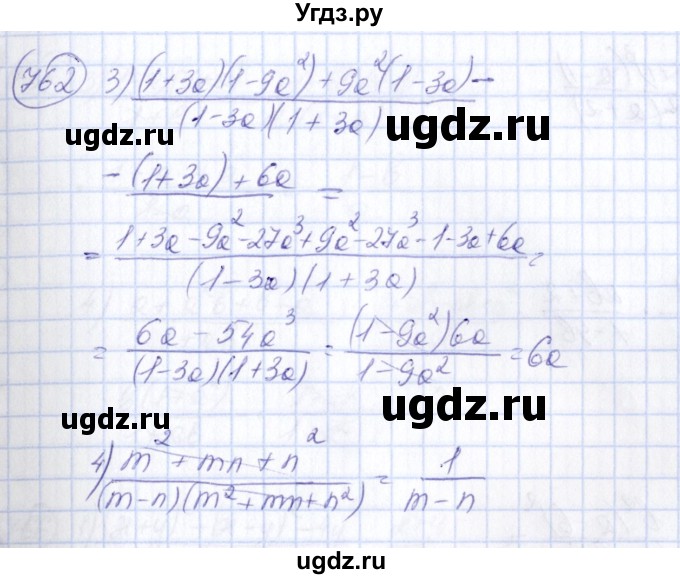 Угдз.ру
762 3) (1+3a)(1-9a²)+9a²(1-3a)-
(1-3a)(1+3a)
ugdz.ru
ugdz.ru
-(1+3a)+6a =
= 1+3a-9a²-27a³+9a²-27a³-1-3a+6a =
(1-3a)(1+3a)
= 6a-54a³ / (1-3a)(1+3a) = (1-9a²)6a / 1-9a² = 6a
ugdz.ru
ugdz.ru
4) m²+mn+n² / (m-n)(m²+mn+n²) = 1 / m-n
ugdz.ru